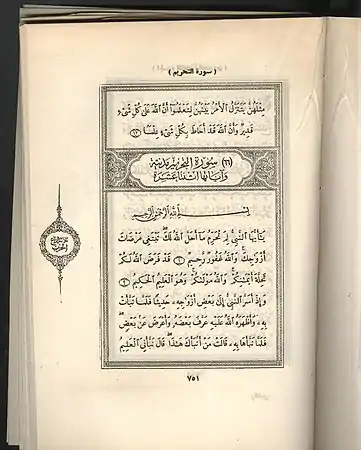 ( سورة التحريم )
مِثْلَهُنَّ يَتَنَزَّلُ الْأَمْرُ بَيْنَهُنَّ لِتَعْلَمُوٓا۟ أَنَّ ٱللَّهَ عَلَىٰ كُلِّ شَىْءٍ
قَدِيرٌ وَأَنَّ ٱللَّهَ قَدْ أَحَاطَ بِكُلِّ شَىْءٍ عِلْمًۢا ⟨١٢⟩
(٦٦) سُورَةُ التَّحْرِيمِ مَدَنِيَّة
وَآيَاتُهَا اثْنَتَا عَشْرَةَ
بِسْمِ ٱللَّهِ ٱلرَّحْمَٰنِ ٱلرَّحِيمِ
يَٰٓأَيُّهَا ٱلنَّبِىُّ لِمَ تُحَرِّمُ مَآ أَحَلَّ ٱللَّهُ لَكَ ۖ تَبْتَغِى مَرْضَاتَ
أَزْوَٰجِكَ ۚ وَٱللَّهُ غَفُورٌ رَّحِيمٌ ⟨١⟩ قَدْ فَرَضَ ٱللَّهُ لَكُمْ
تَحِلَّةَ أَيْمَٰنِكُمْ ۚ وَٱللَّهُ مَوْلَىٰكُمْ ۖ وَهُوَ ٱلْعَلِيمُ ٱلْحَكِيمُ ⟨٢⟩
وَإِذْ أَسَرَّ ٱلنَّبِىُّ إِلَىٰ بَعْضِ أَزْوَٰجِهِۦ حَدِيثًا فَلَمَّا نَبَّأَتْ
بِهِۦ وَأَظْهَرَهُ ٱللَّهُ عَلَيْهِ عَرَّفَ بَعْضَهُۥ وَأَعْرَضَ عَنۢ بَعْضٍ ۖ
فَلَمَّا نَبَّأَهَا بِهِۦ قَالَتْ مَنْ أَنۢبَأَكَ هَٰذَا ۖ قَالَ نَبَّأَنِىَ ٱلْعَلِيمُ
٧٥١